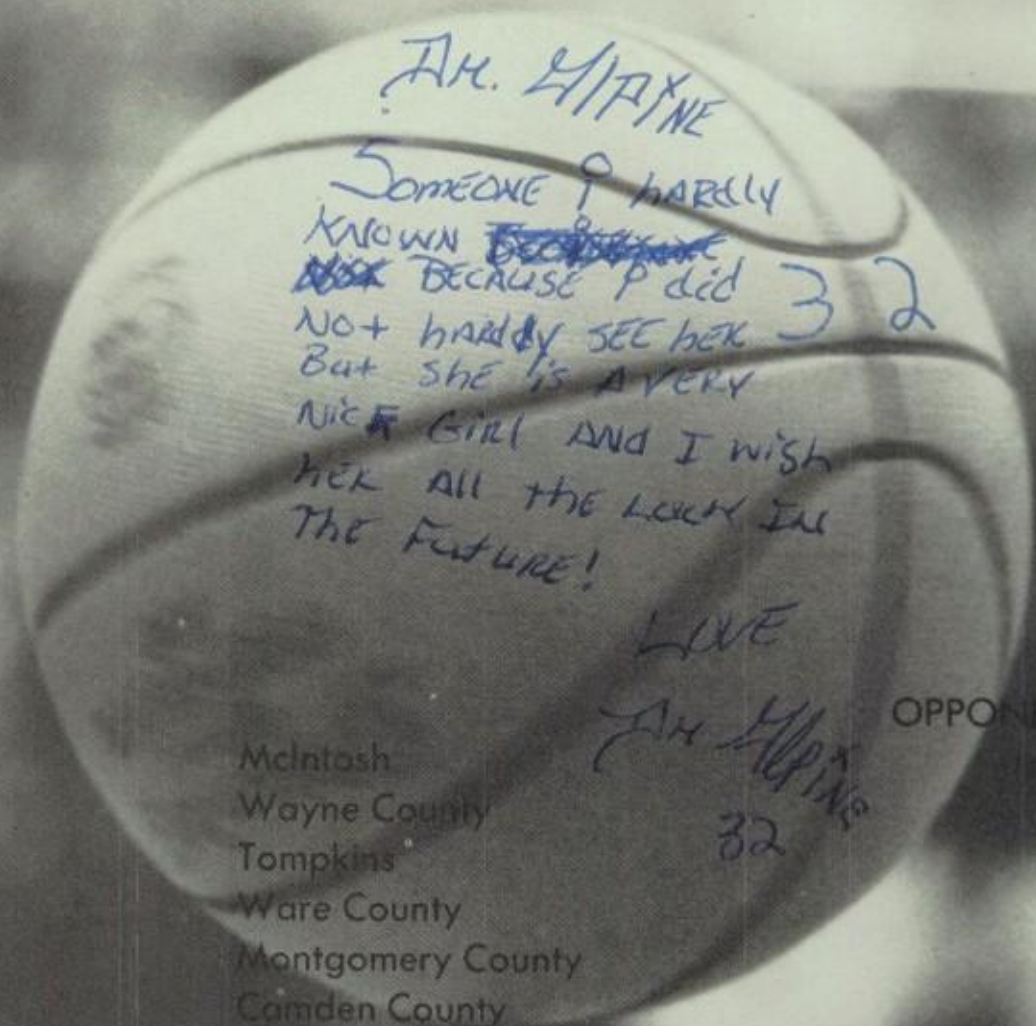 Someone I hardly
Known
Because I did
Not hardly see her
But she is a very
Nice Girl and I wish
her all the Luck In
The Future!
32
Love
32
OPPON
McIntosh
Wayne County
Tompkins
Ware County
Montgomery County
Camden County